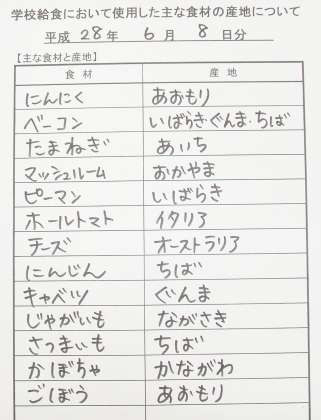 学校給食において使用した主な食材の産地について
平成 28 年 6 月 8 日分
【主な食材と産地】
食材 産地
にんにく あおもり
ベーコン いばらき・ぐんま・ちば
たまねぎ あいち
マッシュルーム おかやま
ピーマン いばらき
ホールトマト イタリア
チーズ オーストラリア
にんじん ちば
キャベツ ぐんま
じゃがいも ながさき
さつまいも ちば
かぼちゃ かながわ
ごぼう あおもり